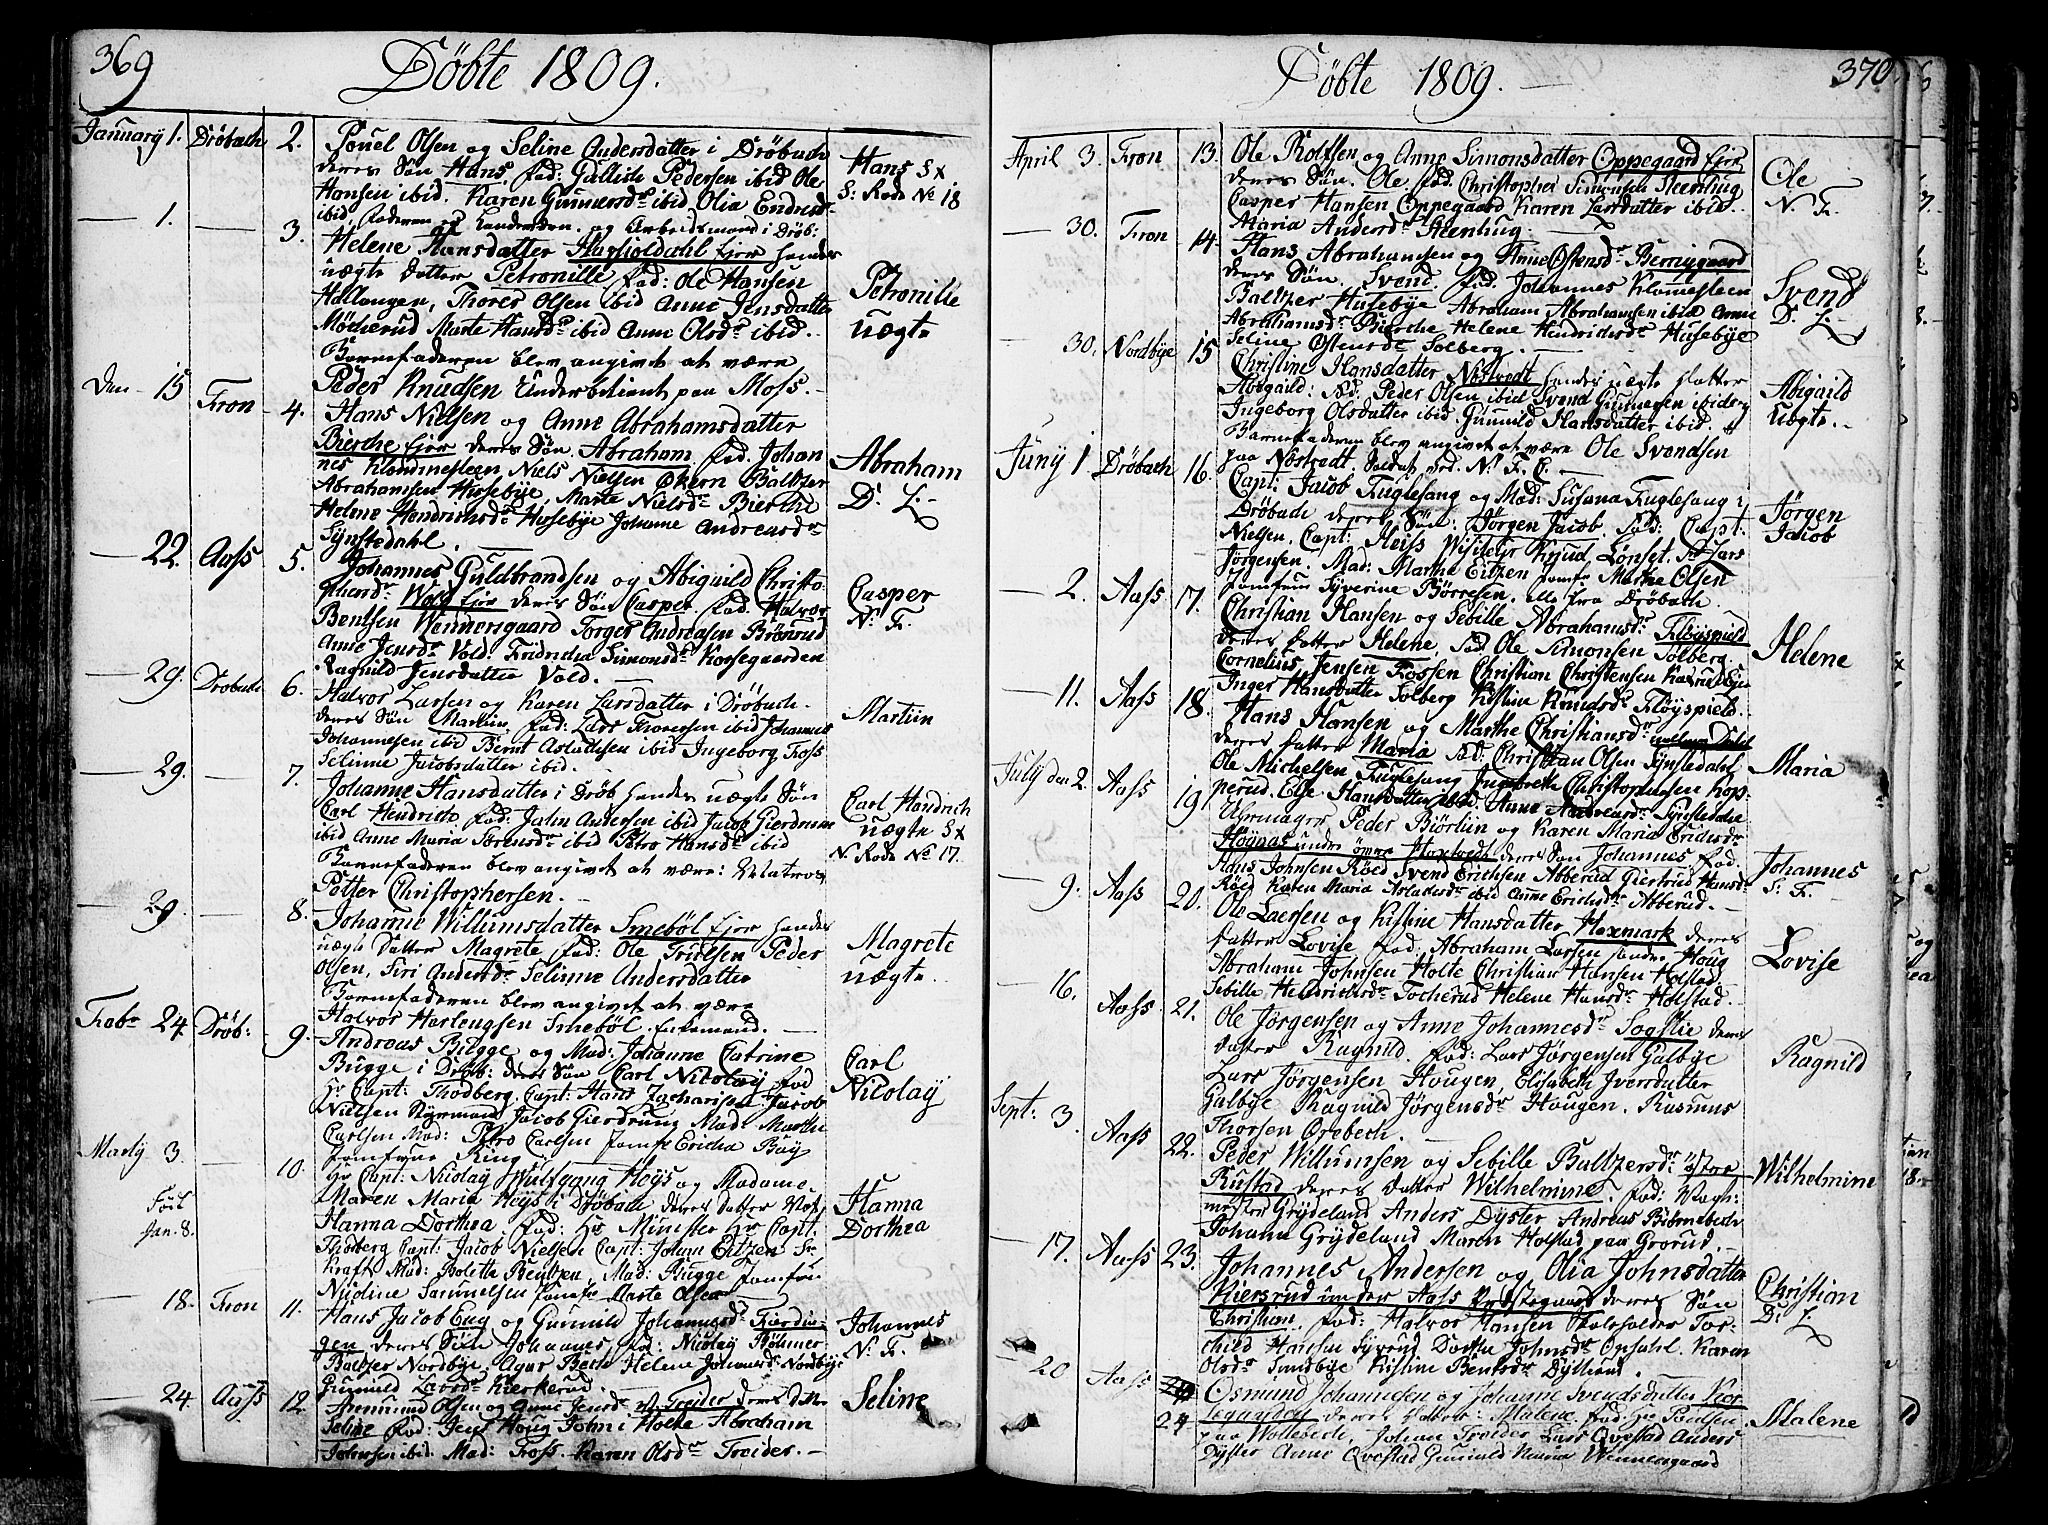 369
Döbte 1809.
January 1. Dröbach 2. Pouel Olsen og Seline Andersdatter i Dröbach
deres Sön Hans. fad: Gullich Pedersen ibid Ole
Hansen ibid. Karen Gunnersdr ibid. Olia Endresdr
ibid
Hans Sx
S: Rode No 18
1. 3. Helene Hansdatter
uægte Datter Petronille fad: Ole Hansen
Hallangen, Thores Olsen ibid Anne Jensdatter
Möcherud Marte Hansdr ibid Anne Olsdr ibid.
Barnefaderen blev angivet at være
Peder Knudsen Underbetient paa Moss.
Petronille
uægte
Den 15 Fron 4. Hans Nielsen og Anne Abrahamsdatter
Bierche Ejer deres Sön. Abraham fad. Johan
nes Klommesteen Niels Nielsen Ekern Baltzer
Abrahamsen Husebye, Marte Nielsdr Bierche
Helene Hendrichsdr Husebye Johanne Andreasdr
Synstedahl.
Abraham
D. L.
22. Aass 5. Johannes Guldbrandsen og Abigaild Christo-
deres Sön Casper fad. Halvor
Bentsen Wennersgaard Torger Andreasen Brönrud
Anne Jensdr Vold. Fridricha Simonsdr Korsegaarden
Ragnild Jensdatter Vold.
Casper
N. F.
29. Drobach 6. Halvor Larsen og Karen Larsdatter i Dröbach
deres Sön Martin, fad: Lars Thoresen ibid Johannes
Johannesen ibid Bernt Aslachsen ibid Ingeborg Foss
Selinne Jacobsdatter ibid.
Martiin
29. 7. Johanne Hansdatter i Dröb hendes uægte Sön
Carl Hendrich fad: John Andersen ibid Jacob Gierdrum
ibid Anne Maria Sörensdr ibid Petro Hansdr ibid
Barnefaderen blev angivet at være: Matros
Petter Christophersen.
Carl Hendrich
uægte Sx
N. Rode No 17.
29. 8. Johanne Willumsdatter Smeböl Ejer hendes
uægte Datter Magrete fad: Ole Truelsen Peder
Olsen, Siri Andersdr Selinne Andersdatter
Barnefaderen blev angivet at være
Halvor Herlengsen Smeböl. Enkemand.
Magrete
uægte.
Febr 24. Dröb: 9. Andreas Bugge og Mad: Johanne Catrine
Bugge i Dröb: deres Sön Carl Nicolay fad
Hr Capt: Thodberg. Capt: Hans Zachariasen Jacob
Nielsen Styrmand Jacob Gierdrung Mad: Marthe
Carlsen Mad: Petro Carlsen Jomfr Ericha Bay
Jomfrue Ring
Carl
Nicolay
Marty 3. 10. Hr Capt: Nicolay Wulfgang Heys og Madame
Maren Maria Heys i Dröbach deres Datter
Hanna Dorthea fad: Hr Münster Hr Capt:
Thodberg Capt: Jacob Nielsen Capt: Johan Eitzen Fr
Kraft Mad: Bolette Bentzen, Mad: Bugge Jomfru
Nicoline Samuelsen Jomfr Marte Olsen
Född
Jan. 8.
Hanna
Dorthea
18. Fron 11. Hans Jacob Eng og Gunnild Johannesdr
gen deres Sön Johannes, fad: Nicolay Böhmer
Baltzer Nordbye. Agur Bech Helene Johansdr Nordbye
Gunnild Larsdr Kierkerud
Johannes
N. F.
24. Aass 12. Ammund Olsen og Anne Jensdr Froider deres Datter
Seline fad: Jens Houg John i Holte Abraham
Johnsen ibid. Mad: Foss. Karen Olsdr Froider.
Seline
370
Döbte 1809.
April 3. Fron 13. Ole Rolfsen og Anne Simonsdatter Oppegaard Ejer
deres Sön. Ole. fad. Christopher Simonsen Steenhug
Casper Hansen Oppegaard Karen Larsdatter ibid.
Maria Andersdr Steenhug.
Ole
N. F.
30. Fron 14. Hans Abrahamsen og Anne Östensdr Berrygaard
deres Sön. Svend. fad. Johannes Klomesteen
Baltzer Husebye Abraham Abrahamsen ibid Anne
Abrahamsdr Bierche Helene Hendrichsdr Husebye
Seline Östensdr Solberg.
Svend
D. L.
30. Nordbye 15 Christine Hansdatter Nöstvedt hendes uægte Datter
Abigaild: fad: Peder Olsen ibid Svend Gunnersen ibid
Ingeborg Olsdatter ibid. Gunnild Hansdatter ibid.
Barnefaderen blev angivet at være Ole Svendsen
paa Nöstvedt. Soldat ved N. F. C.
Abigaild
Uægte.
Juny 1 Dröbach 16. Capt: Jacob Fuglesang og Mad: Susana Fuglesang i
Dröbach deres Sön: Jörgen Jacob. fad: Capt:
Nielsen. Capt: Heiss Wisiteür Knud Lönset. Lars
Jörgensen. Mad: Marthe Eitzen Jomfr Marthe Olsen
Jomfrue Syverine Börresen. alle fra Dröbach.
Jörgen
Jacob
2. Aass 17. Christian Hansen og Sebille Abrahamsdr Flöyspield
deres Datter Helene, fad Ole Simonsen Solberg
Cornelius Jensen Fossen Christian Christensen
Inger Hansdatter Solberg Kistine Knudsdr Flöyspield.
Helene
11. Aass 18. Hans Hansen og Marthe Christiansdr
deres Datter Maria fad: Christian Olsen Synstedahl
Ole Michelsen Fuglesang Ingebreth Christophersen Kop-
perud. Else Hansdatter ibid. Anne Andreasdr Synstedahl
Maria
July den 2. Aass 19 Uhrmager Peder Björliin og Karen Maria Erichsdr
Högnas under övre Haxtvedt deres Sön Johannes fad.
Hans Johnsen Röed Svend Erichsen Abberud Giertrud Hansdr
Röed Karen Maria Aslachsdr ibid Anne Erichsdr Abberud.
Johannes
S. F.
9. Aass 20. Ole Laersen og Kistine Hansdatter Hoxmark deres
Datter Lovise fad. Abraham Larsen söndre Houg
Abraham Johnsen Holte Christian Hansen Holstad
Sibille Hendrichsdr Tocherud Helene Hansdr Holstad.
Lovise
16. Aass 21. Ole Jörgensen og Anne Johannesdr Sogstie deres
Datter Ragnild. fad: Lars Jörgensen Galbye
Lars Jörgensen Hougen, Elisabeth Iversdatter
Galbye Ragnild Jörgensdr Hougen. Rasmus
Thorsen Orebech.
Ragnild
Sept: 3. Aass 22. Peder Willumsen og Sebille Baltzersdr östre
Rustad deres Datter Wilhelmine. fad: Vagt-
mester Grydeland Anders Dyster Andreas Björnebech
Johanne Grydeland Maren Holstad paa Grorud.
Wilhelmine
17. Aass 23. Johannes Andersen og Olia Johnsdatter
Kiersrud under Aass Præstegaard deres Sön
Christian. fad: Halvor Hansen Skoleholder Tor-
child Hansen Syverud Dorthe Johnsdr Opsahl. Karen
Olsdr Smebye Kistine Bentsdr Dyllerud.
Christian
D. L.
20 Aass 24 Osmund Johannesen og Johanne Svendsdatter Kor
segaarden deres Datter: Malene. fad: Hr Poulsen
paa Wollebech, Johan Froider Lars Qvestad Anders
Dyster Anne Qvestad Gunnild Maria Wennersgaard
Malene